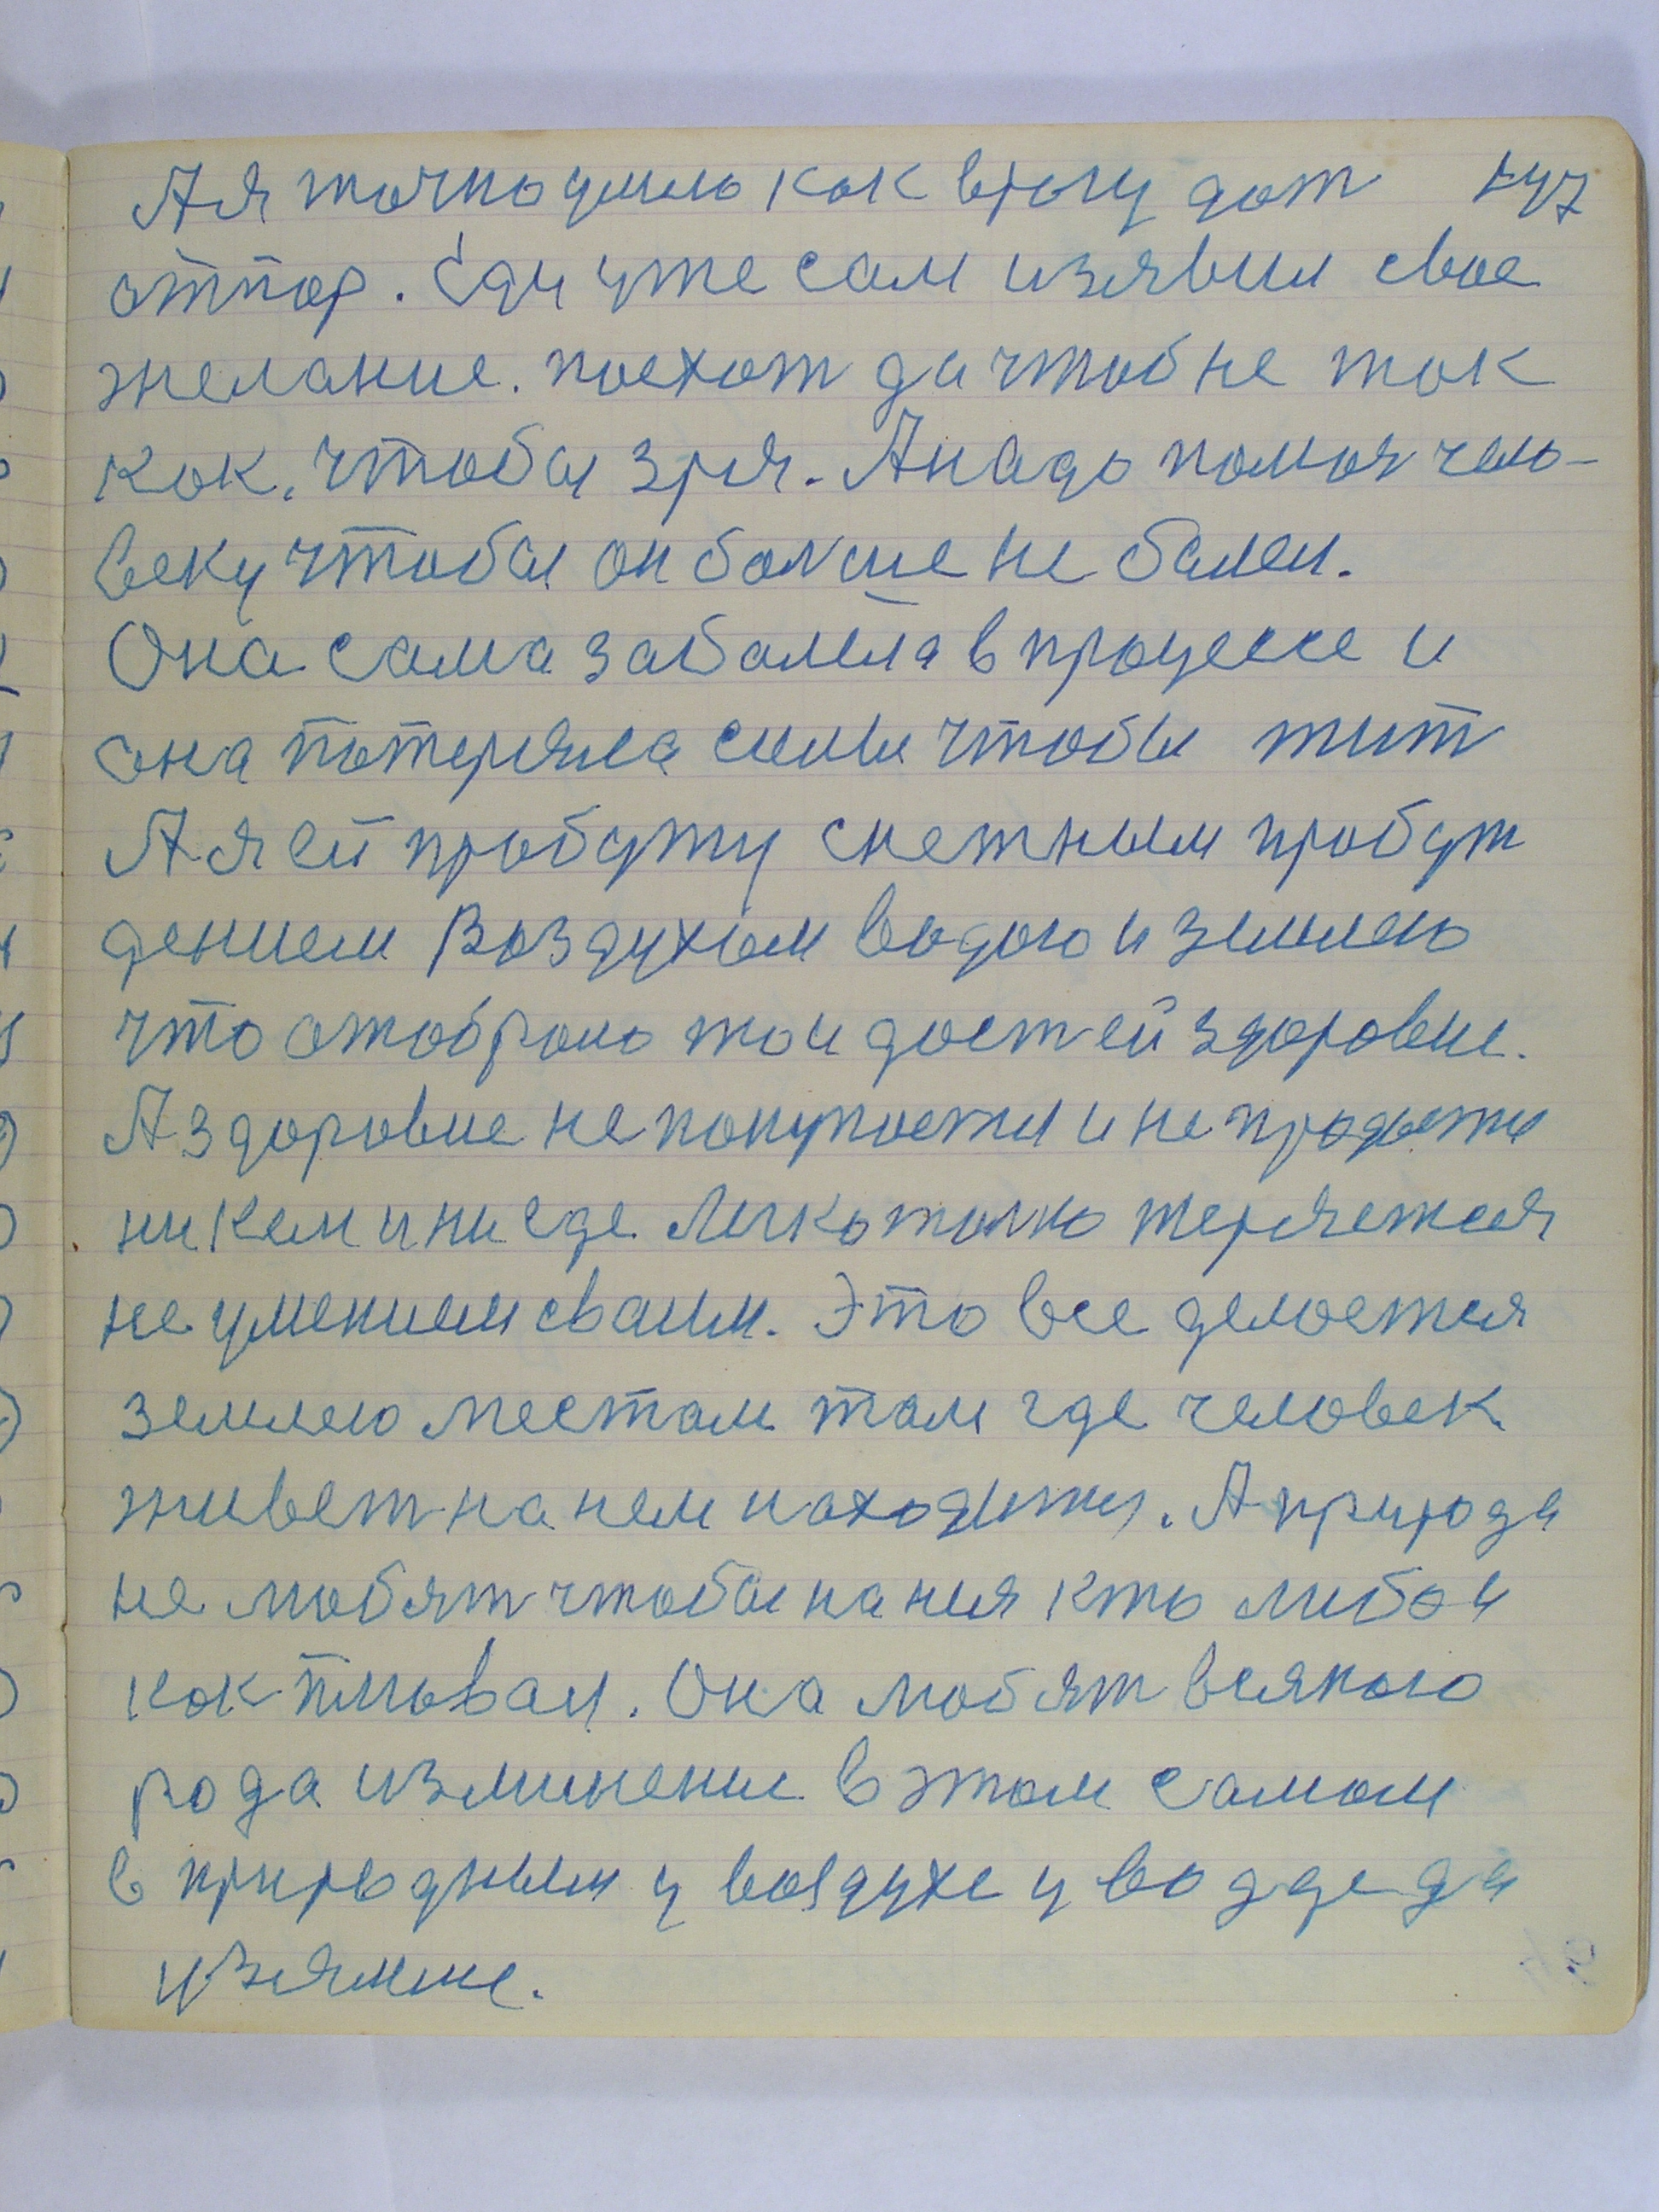 А я точно думаю как врагу дат
отпор. Еди уже сам изявил свое
желание. поехат да чтоб не так
как. чтобы зря. А надо помоч чело-
веку чтобы он болше не болел.
Она сама заболела в процессе и
она потеряла силы чтобы жит
А я ей пробужу снежным пробуж
дением Воздухом водою и землею
что отобрано то и даст ей здоровие.
А здоровие не покупается и не продается
ни кем и ни где Легко толко теряется
не умением своим. Это все делается
землею местам там где человек
живет на нем находится. А природа
не любят чтобы на ния кто либо и
как плювал. Она любят всякого
рода изминение в этом самом
в природным у воздухе у водде да
и земле.